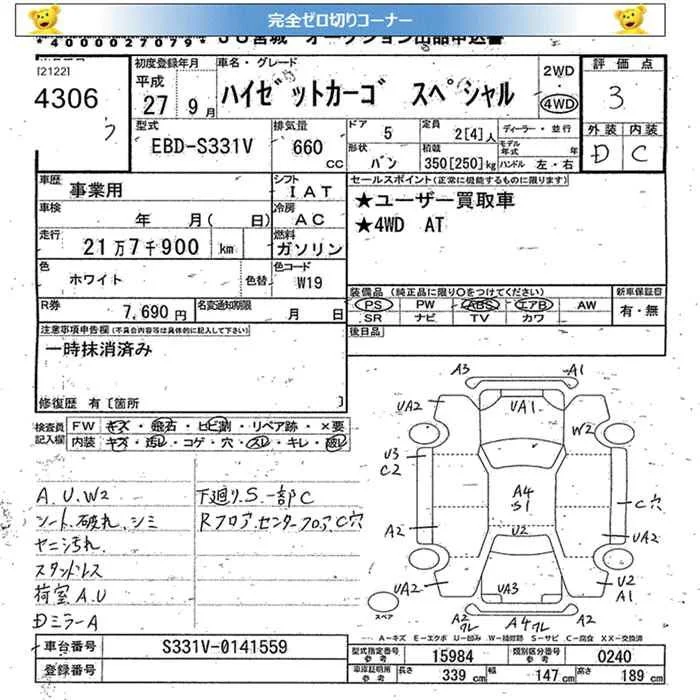 完全ゼロ切りコーナー
*4000027079* JU宮城 オークション出品申込書
[2122]
4306
初度登録年月
平成
27 9月
車名・グレード
ハイゼットカーゴ スペシャル
2WD
4WD
評価点
3
外装 内装
D C
型式
EBD-S331V
排気量
660 CC
ドア 5
形状 バン
定員 2[4]人
積載 350[250]kg
ディーラー・並行
モデル年式 年
ハンドル 左・右
車歴 事業用
シフト IAT
車検 年 月( 日)
冷房 AC
走行 21万7千900 km
燃料 ガソリン
色 ホワイト 色替
色コード W19
R券 7,690円
名変通知期限 月 日
セールスポイント(正常に機能するものに限ります)
★ユーザー買取車
★4WD AT
装備品(純正品に限り○をつけてください)
PS PW ABS エアB AW
SR ナビ TV カワ
新車保証書
有・無
後日品
注意事項申告欄(不具合内容等は具体的に記入して下さい)
一時抹消済み
修復歴 有[箇所 ]
検査員記入欄
FW キズ・飛石・ヒビ割・リペア跡・×要
内装 キズ・汚レ・コゲ・穴・スレ・キレ・破レ
A.U.W2
シート破れ、シミ
ヤニ汚れ
スタッドレス
荷室A.U
DミラーA
下廻りS.一部C
Rフロア.センターフロアC穴
A3 A1
UA2 UA1 W2
U3
C2
A4
S1
C穴
A2 U2 UA2
UA2 UA3 U2
A1
A2
ワレ
A4ワレ A2
スペア
A−キズ E−エクボ U−凹み W−補修跡 S−サビ C−腐食 XX−交換済
車台番号 S331V-0141559
登録番号
型式指定番号
参考
15984
類別区分番号
参考
0240
車庫証明用
参考
長さ 339 cm 幅 147 cm 高さ 189 cm